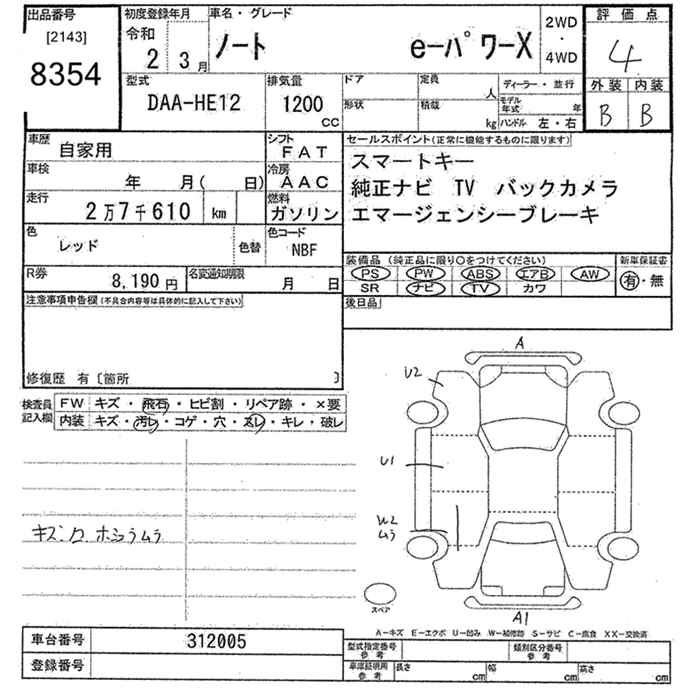 出品番号
[2143]
8354
初度登録年月
令和
2 3月
車名・グレード
ノート e-パワーX
2WD
・
4WD
評価点
4
外装 内装
B B
型式
DAA-HE12
排気量
1200
CC
ドア
形状
定員
人
積載
kg
ディーラー・並行
モデル年式 年
ハンドル 左・右
車歴
自家用
シフト
FAT
車検
年 月( 日)
冷房
AAC
走行
2万7千610 km
燃料
ガソリン
色
レッド
色替
色コード
NBF
R券
8,190円
名変通知期限
月 日
セールスポイント(正常に機能するものに限ります)
スマートキー
純正ナビ TV バックカメラ
エマージェンシーブレーキ
装備品 (純正品に限り○をつけてください)
新車保証書
PS PW ABS エアB AW
SR ナビ TV カワ
有・無
後日品
注意事項申告欄(不具合内容等は具体的に記入して下さい)
修復歴 有〔箇所 〕
検査員記入欄
FW キズ・飛石・ヒビ割・リペア跡・×要
内装 キズ・汚レ・コゲ・穴・スレ・キレ・破レ
A
U2
U1
U2
ムラ
A1
スペア
A-キズ E-エクボ U-凹み W-補修跡 S-サビ C-腐食 XX-交換済
車台番号 312005
登録番号
型式指定番号
参考
類別区分番号
参考
車庫証明用
参考
長さ cm 幅 cm 高さ cm